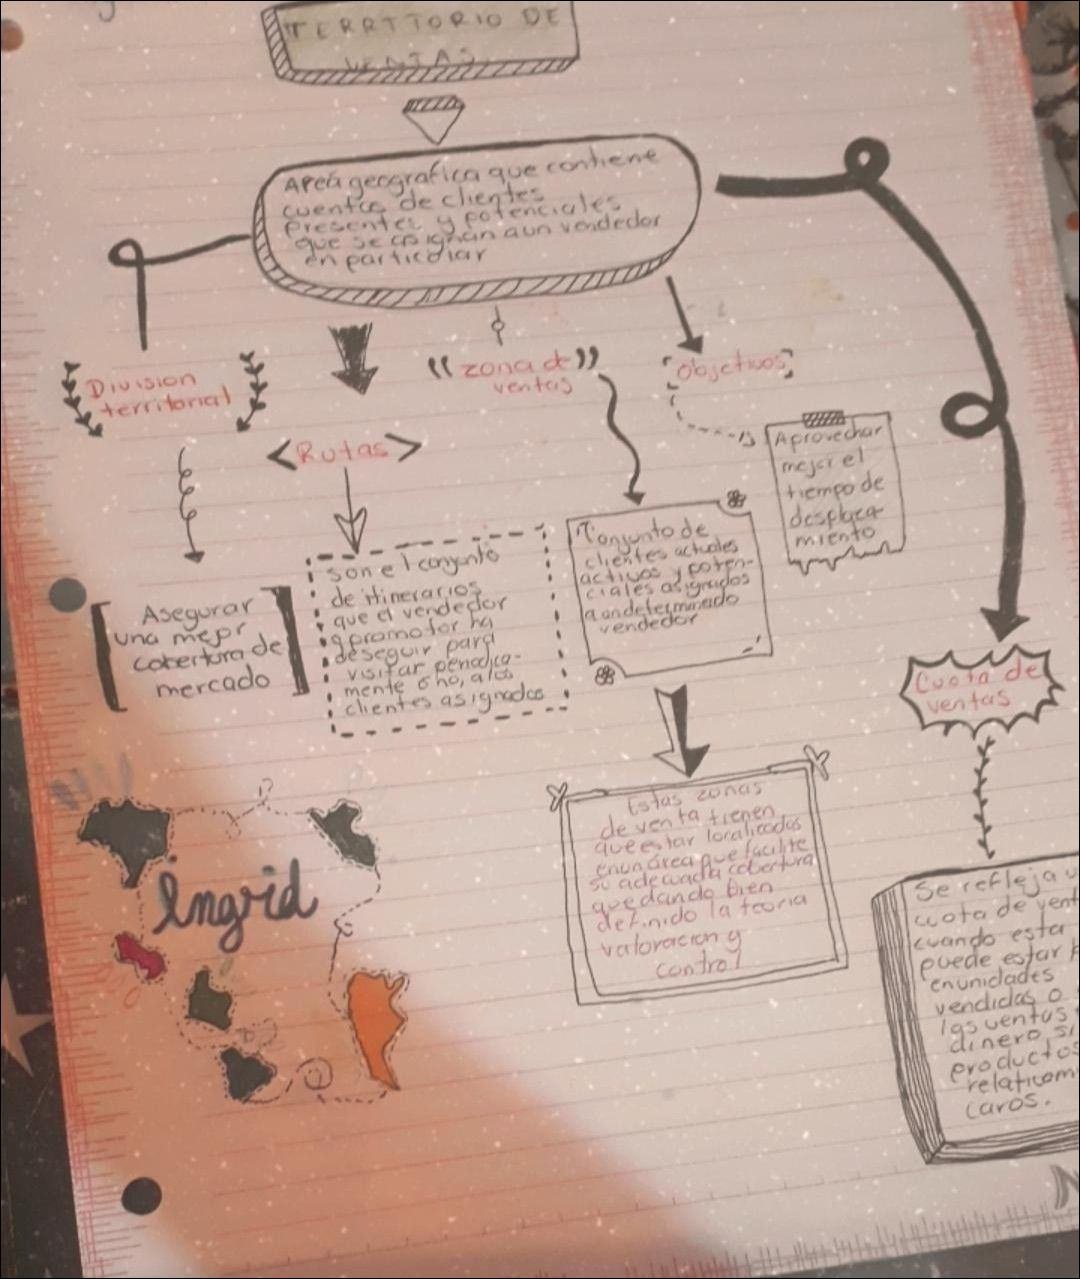 TERRTORIO DE
VENTAS.
Areá geografica que contiene
cuentas de clientes
presentes y potenciales
que se asignan aun vendedor
en particular
Division
territorial
Asegurar
una mejor
cobertura de
mercado
<Rutas>
son el conjunto
de itinerarios
que el vendedor
o promotor ha
deseguir para
visitar periodica-
mente o no, a los
clientes asignados
"zona de"
ventas
Conjunto de
clientes actuales
activos y poten-
ciales asignados
a undeterminado
vendedor
Estas zonas
de venta tienen
que estar localizadas
en un área que facilite
su adecuada cobertura
quedando bien
definido la teoria
valoracion y
control
Objetivos
Aprovechar
mejor el
tiempo de
desplaza-
miento
Cuota de
ventas
Se refleja u
cuota de vent
cuando esta
puede estar
en unidades
vendidas o
las ventas
dinero si
productos
relaticom
caros.
Ingrid